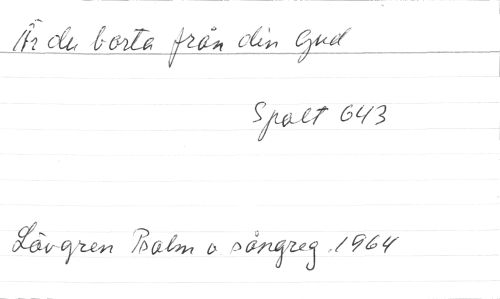 Är du borta från din Gud
Spalt 643
Lövgren Psalm o sångreg. 1964